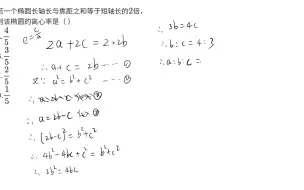 一个椭圆长轴长与焦距之和等于短轴长的2倍，
则该椭圆的离心率是（ ）
4/5
3/5
2/5
1/5
e=c/a
2a+2c=2×2b
∴a+c=2b ----- ①
又∵a²=b²+c² ----- ②
∴a=2b-c
∴(2b-c)²=b²+c²
∴4b²-4bc+c²=b²+c²
∴3b²=4bc
∴3b=4c
∴b:c=4:3
∴a:b:c=